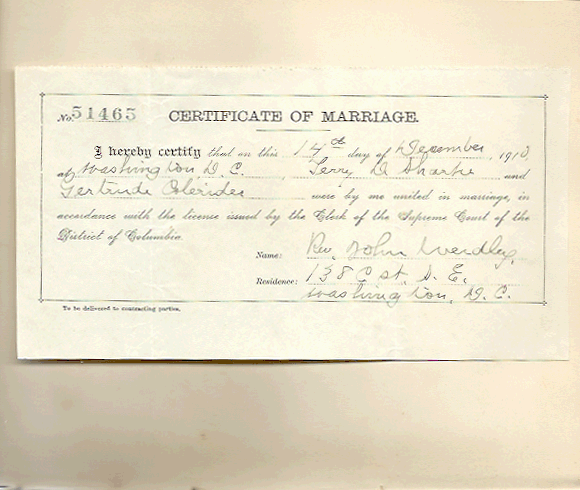 No. 51465 CERTIFICATE OF MARRIAGE.
I hereby certify that on this 14th day of December, 1910,
at Washington, D. C., Perry D Sharke and
Gertrude were by me united in marriage, in
accordance with the license issued by the Clerk of the Supreme Court of the
District of Columbia.
Name: Rev. John Weidley,
Residence: 138 C st. S. E.
Washington, D. C.
To be delivered to contracting parties.